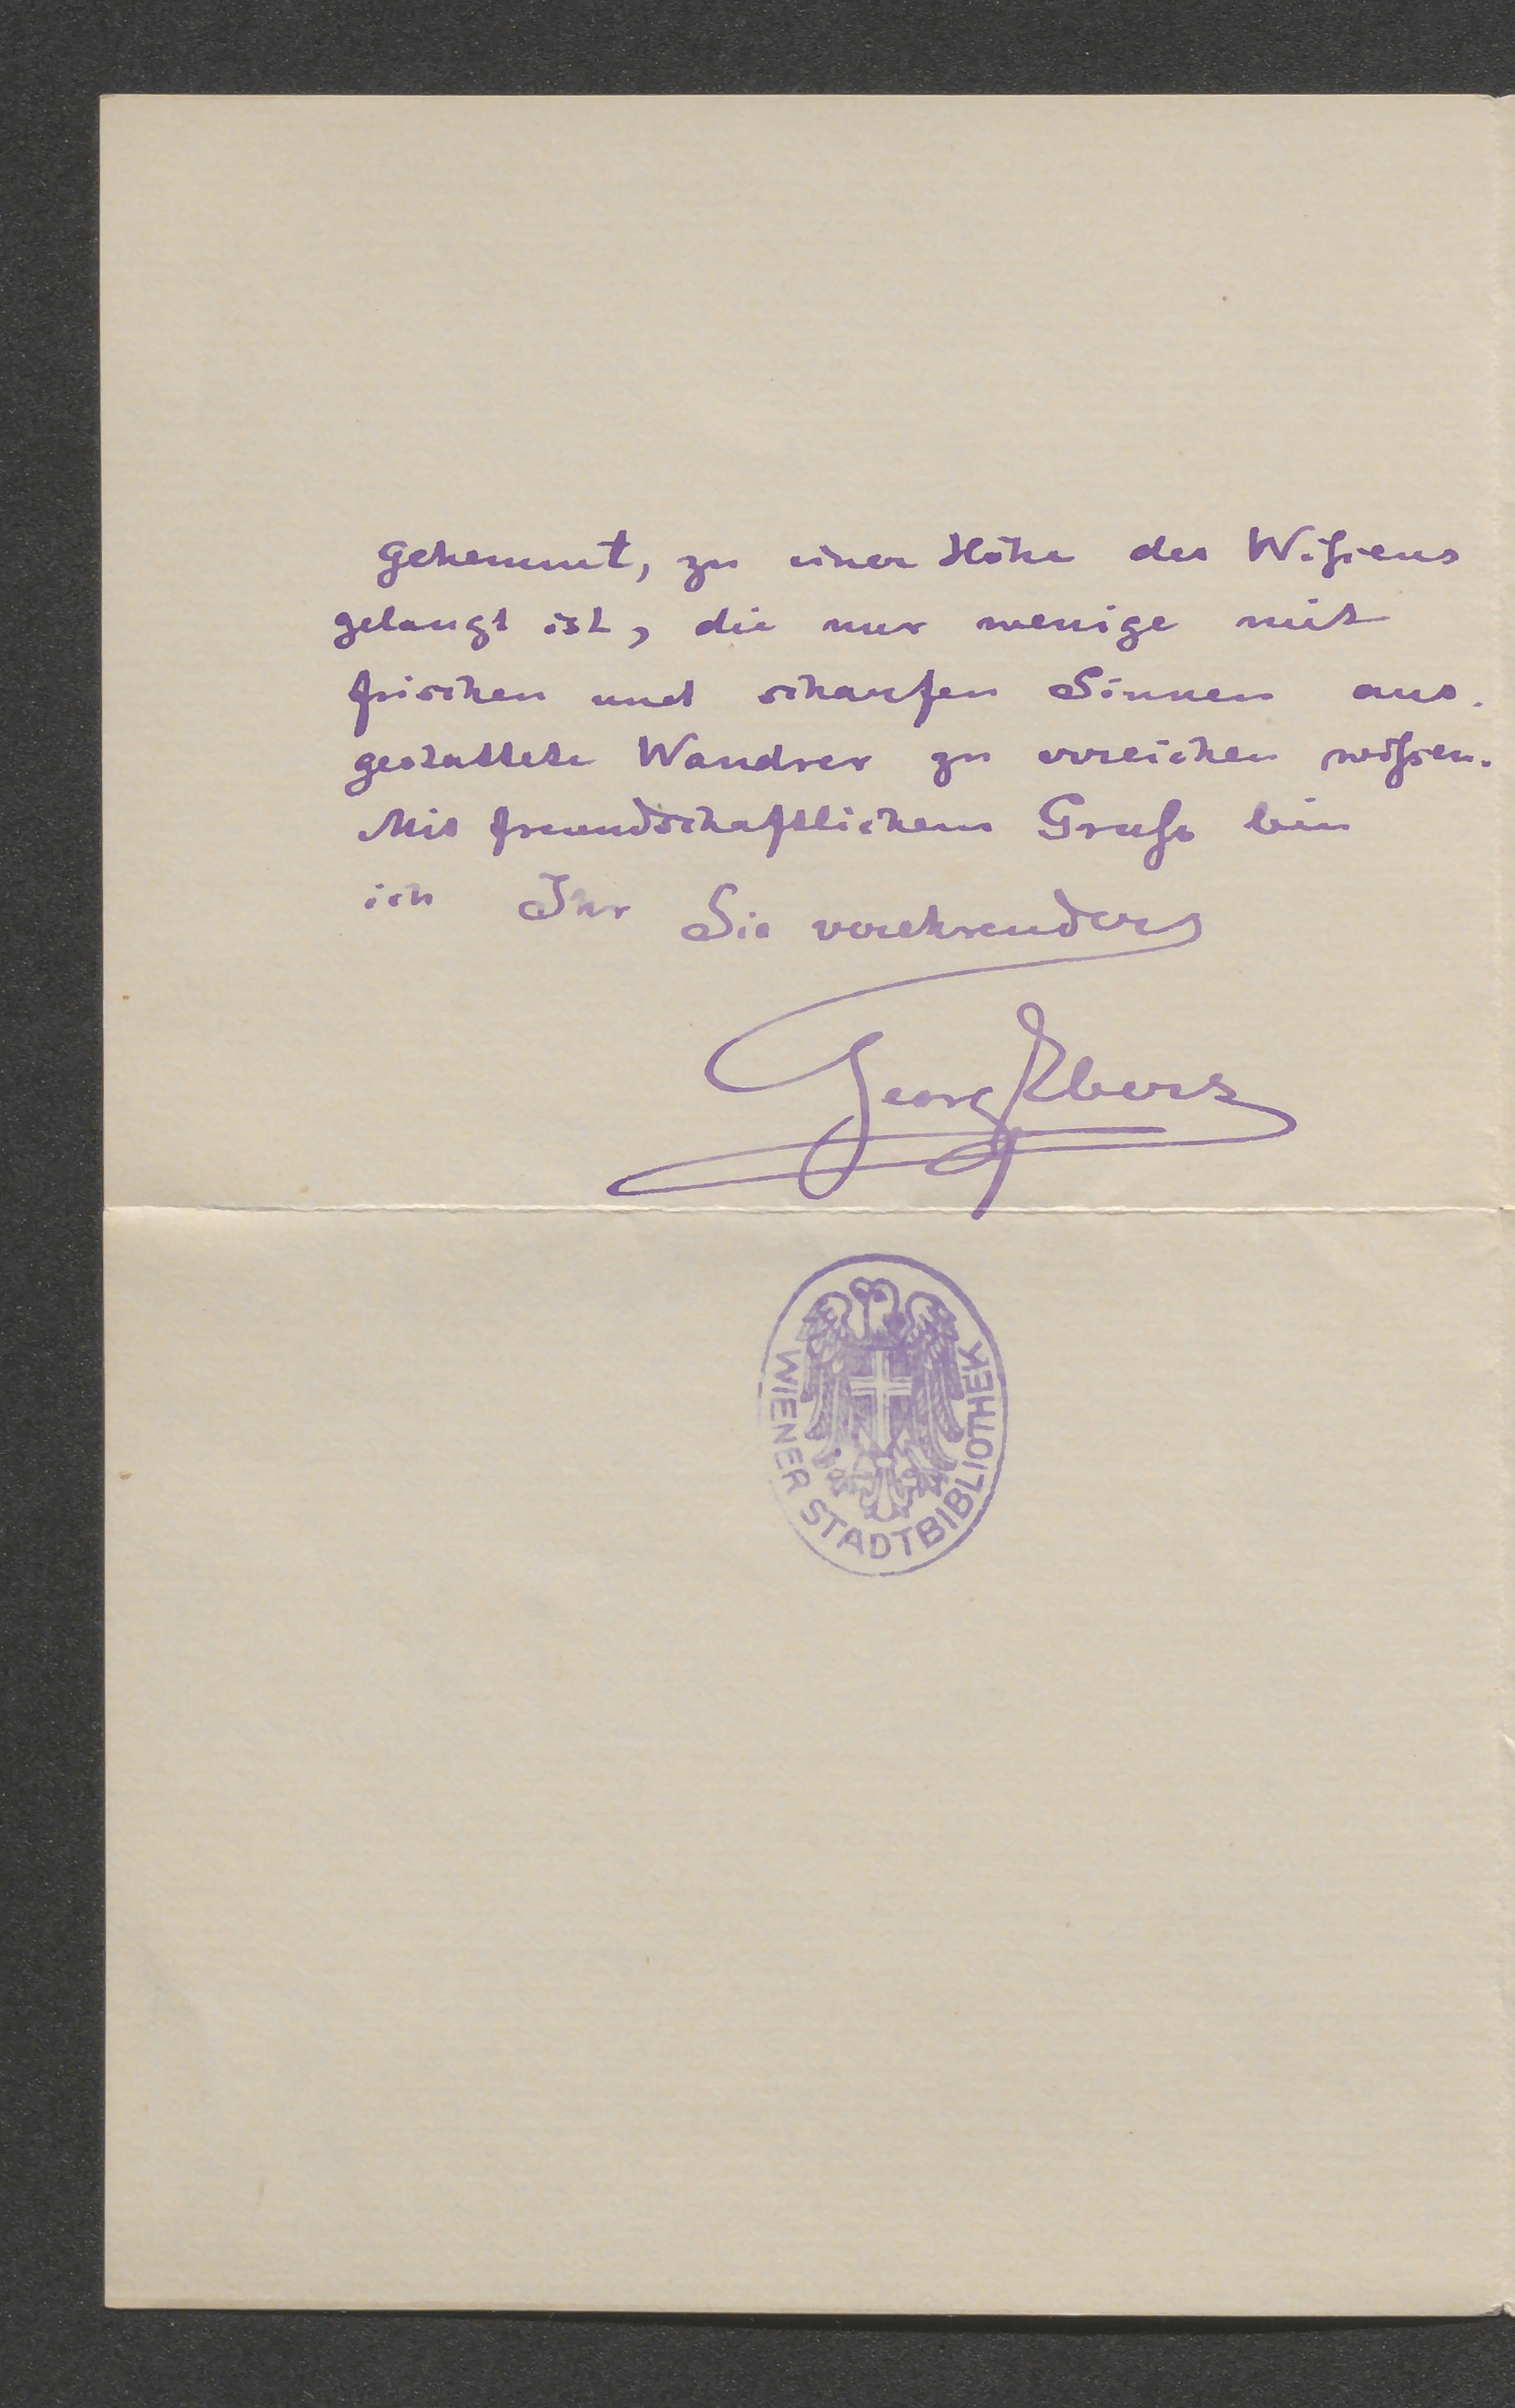 gehemmt, zu einer Höhe des Wißens
gelangt ist, die nur wenige mit
frischen und scharfen Sinnen aus-
gestattete Wandrer zu erreichen wißen.
Mit freundschaftlichem Gruß bin
ich Ihr Sie verehrender
Georg Ebers
WIENER STADTBIBLIOTHEK